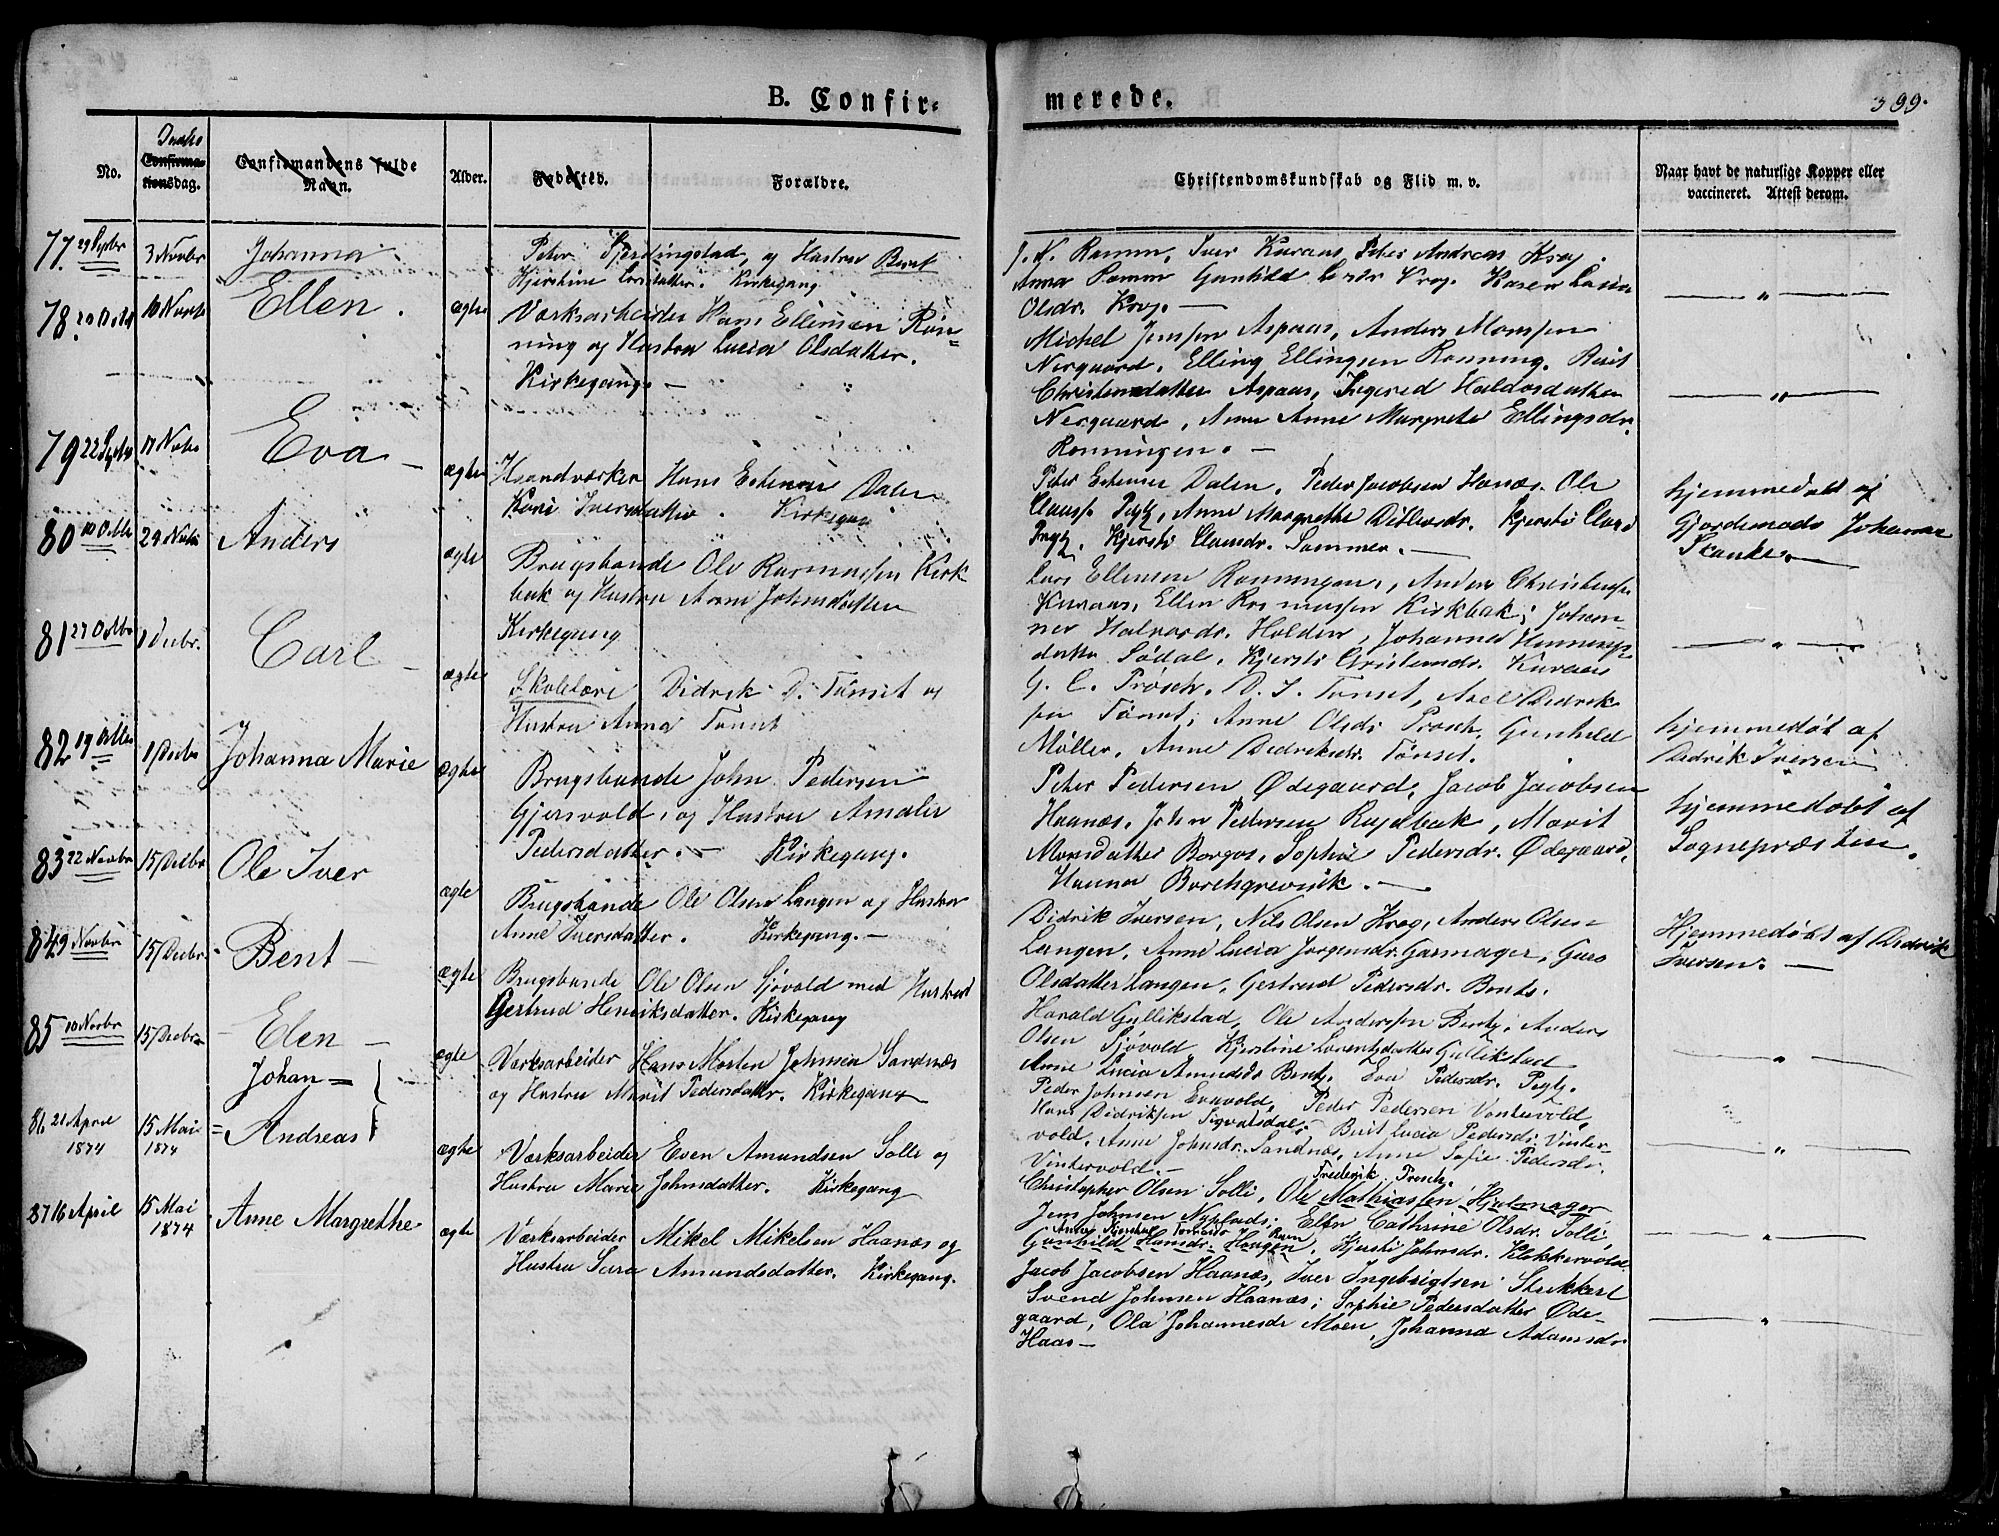 B. Confir-
merede.
399.
No.
Daabs
Confirma-
tionsdag.
Confirmandens fulde
Navn.
Alder.
Fødested.
Forældre.
Christendomskundskab og Flid m. v.
Naar havt de naturlige Kopper eller
vaccineret. Attest derom.
77. 29 Septbr
3 Novbr
Johanna
Peter og Hustru Berit
Kirkegang
Iver Kuraas, Peter Andreas Krog.
Anna Ramm Gunhild Krog. Karen Lucia
Olsdr. Krog. —
— " —
78.
10 Novbr
Ellen.
ægte
Værksarbeider Hans Ellensen Røn-
ning og Hustru Lucia Olsdatter.
Kirkegang. —
Michel Jenssen Aspaas, Anders Monssen
Nergaard, Elling Ellingsen Rønning, Berit
Christensdatter Aspaas, Ingered Haldosdatter
Nergaard, Anne Margrete Ellingsdr.
Rønningen. —
— " —
79 22 Septbr
17 Novbr
Eva —
ægte
Haandværker Hans Estensen Dalen
Kari Iversdatter. Kirkegang
Peter Estensen Dalen, Peder Jacobsen Hanæs. Ole
Clauss. Pegtz, Anne Margrethe Kjersti Claus
Kjersti Clausdr. Sommer. —
hjemmedøbt af
Gjordemoder Johanna
Skanke. —
80 10 Octbr
24 Novbr
Anders
ægte
Brugsbonde Ole Rasmussen Kirk-
bak og Hustru Anne Johnsdatter
Kirkegang
Lars Ellensen Rønningen, Anders Christenss.
Kuraas, Ellen Rasmussen Kirkbak; Johan-
ne Halvordr. Holden, Johanna
datter Sødal, Kjersti Cristensdr. Kuraas
— " —
81 27 Octbr
1 Decbr.
Carl —
ægte
Skolelærer Didrik D. Tønset og
Hustru Anna Tønset
G. C. Prøsch. D. I. Tønset, Axel Didrik-
sen Tønset; Anne Olsdr Prosch, Gunhild
Møller, Anne Didriksdr. Tønset.
hjemmedøbt af
Didrik Iversen
82 19 Octbr
1 Decbr
Johanna Marie
ægte
Brugsbonde John Pedersen
Gjersvold, og Hustru Amalie
Pedersdatter. — Kirkegang.
Peter Pedersen Ødegaard, Jacob Jacobsen
Haanæs, John Pedersen Marit
Monsdatter Borgos, Sophie Pedersdr. Ødegaard,
Hanna Borchgrevink. —
hjemmedøbt af
Sognepræsten.
83 22 Novbr
15 Decbr
Ole Iver
ægte
Brugsbonde Ole Olsen Langen og Hustru
Anne Iversdatter. Kirkegang. —
Didrik Iversen, Nils Olsen Krog, Anders Olsen
Langen, Anne Lucia Jørgensdr. Garmager, Guro
Olsdatter Langen, Gertrud Pedersdr. Bentz.
Hjemmedøbt af Didrik
Iversen. —
84 9 Novbr
15/Decbr
Bent —
ægte
Brugsbonde Ole Olsen Sjøvold med Hustru
Gertrud Henriksdatter. Kirkegang
Harald Gullikstad, Ole Anderssen Bentz, Anders
Olsen Sjøvold Kjerstine Lorentzdatter Gullikstad
Anne Lucia Amundsdr Bentz, Eva Pedersdr. Pegtz.
— " —
85 10 Novbr
15/Decbr
Elen —
ægte
Værksarbeider Hans Morten Johnsen Sandnæs
og Hustru Marit Pedersdatter. Kirkegang
Peder Johnsen Evavold, Peder Pedersen Vintervold,
Hans Didriksen Sigvalsdal; — Berit Lucia Pedersdr. Vinter-
vold, Anne Johnsdr. Sandnæs, Anne Sofie Pedersdr.
Vintervold. —
— " —
86 21 April
1874
15 Mai
1874
Johan =
= Andreas
ægte
Værksarbeider Even Amundsen Solli og
Hustru Marie Johnsdatter. Kirkegang
Christopher Olsen Solli, Ole Mathiassen Hjulmager
Frederik Prosch,
Jens Johnsen Nyplads; Ellen Cathrine Olsdr. Solli,
Gunhild Hansdr. Haugen, Kjersti Johnsdr. Klokkervold
— " —
87 16 April
15 Mai
1874
Anne Margrethe
ægte
Værksarbeider Mikel Mikelsen Haanæs og
Hustru Sara Amundsdatter. Kirkegang.
Jacob Jacobsen Haanæs, Iver Ingebrigtsen Stikkert
Svend Johnsen Haanæs; Sophie Pedersdatter Øde-
gaard, Ola Johannesdr Moen, Johanna Adamsdr.
Haas —
— " —